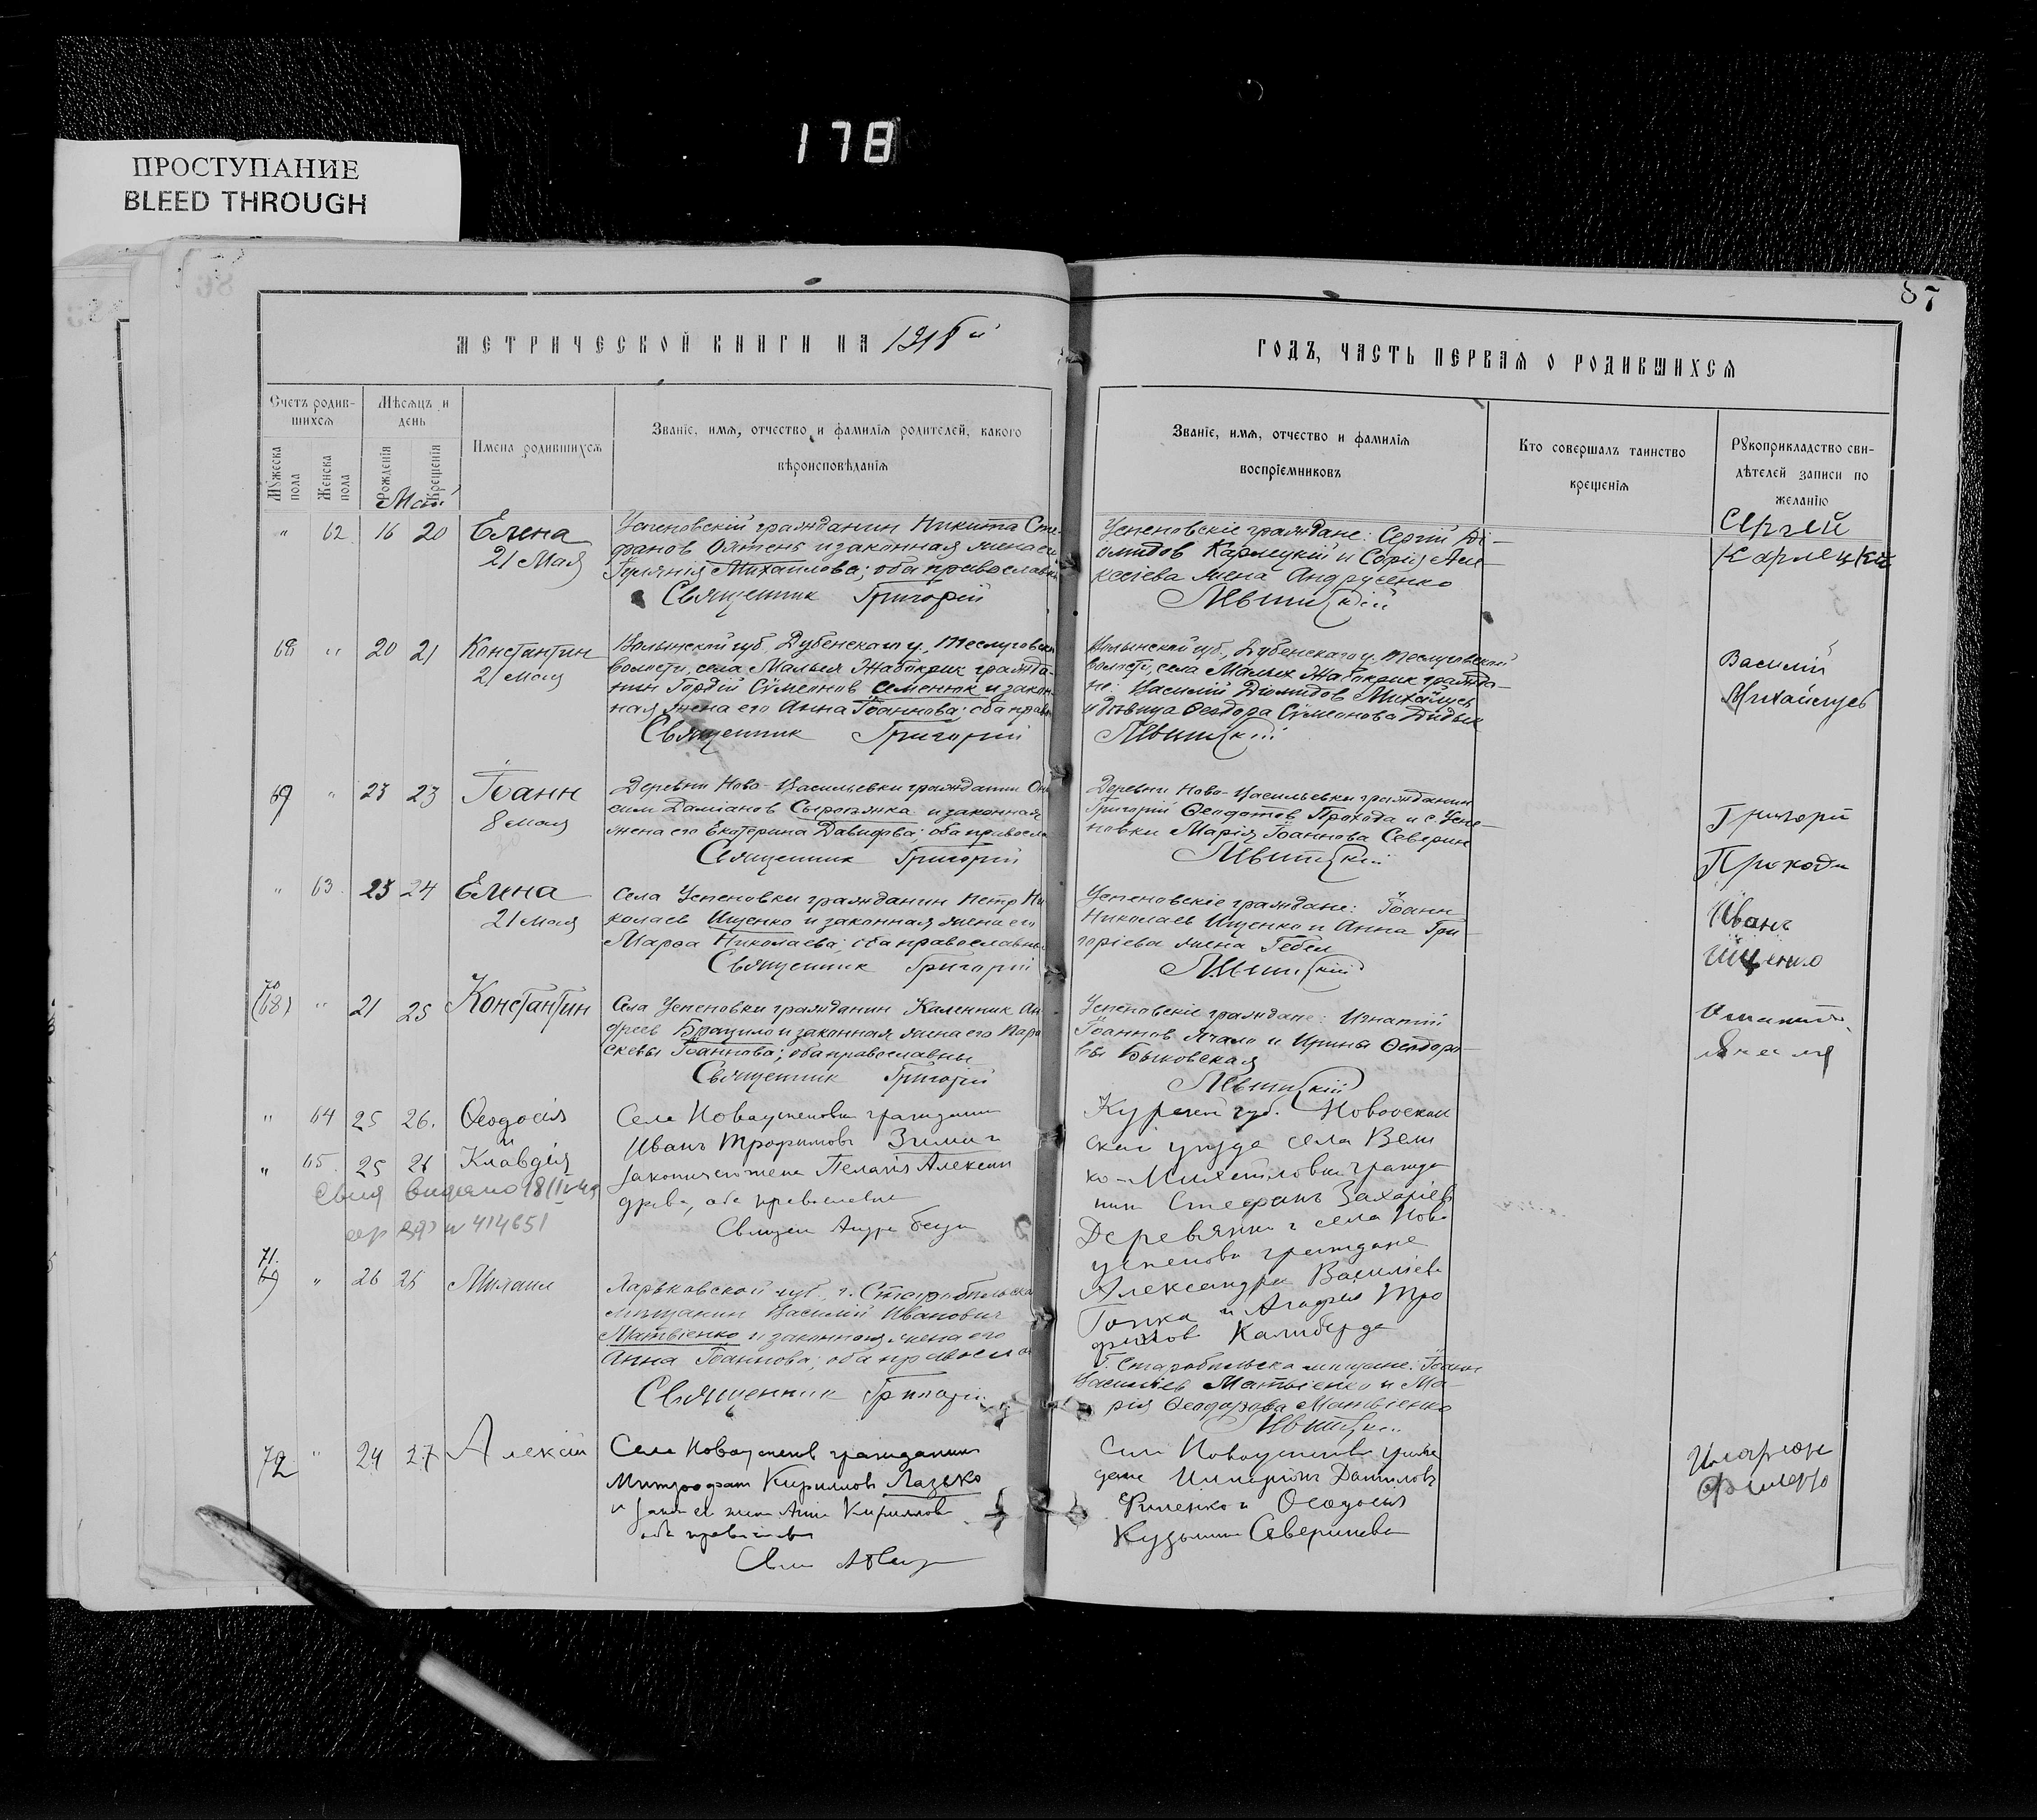 178
ПРОСТУПАНИЕ
BLEED THROUGH
87
МЕТРИЧЕСКОЙ КНИГИ НА 1918й
ГОДЪ, ЧАСТЬ ПЕРВАЯ О РОДИВШИХСЯ
Счетъ родив-
шихся
Мѣсяцъ и
день
Мужеска
пола
Женска
пола
Рожденія
Крещенія
Имена родившихся
Званіе, имя, отчество и фамилія родителей, какого
вѣроисповѣданія
Званіе, имя, отчество и фамилія
воспріемниковъ
Кто совершалъ таинство
крещенія
Рукоприкладство сви-
дѣтелей записи по
желанію
Май
" 62 16 20 Елена
21 Мая
Успеновскій гражданин Никита Сте-
фанов и законная жена его
Михайлова; оба православны
Священник Григорій
Успеновскіе граждане: Сергій Ді-
омидов Карлецкій и Софія Але-
ксіева жена Андрусенко
Левитскій
Сергей
Карлецкій
68 " 20 21 Константин
21 мая
Волынской губ., Дубенского у., Теслуговской
волости, села Малыя Жабокрик гражда-
нин Гордій Сѵмеонов Семенюк и закон-
ная жена его Анна Іоаннова; оба прав
Священник Григорій
Волынской губ., Дубенскаго у., Теслуговской
волости, села Малых Жабокрик гражда-
не: Василій Діомидов Михайлусь
и дѣвица Ѳеодора Сѵмеонова Дидык
Левитскій
Василій
Михайлусь
69 " 23 23 Іоанн
8 мая
Деревни Ново-Васильевки гражданин Они-
сим Даміанов Сыропянка и законная
жена его Екатерина Давидова; оба правосла
Священник Григорій
Деревни Ново-Васильевки гражданин
Григорій Ѳеодотов Прохода и с. Успе-
новки Марія Іоаннова Северин
Левитскій
Григорій
Прохода
" 63 23 24 Елена
21 мая
Села Успеновки гражданин Петр Ни-
колаев Ищенко и законная жена его
Марѳа Николаева; оба православны
Священник Григорій
Успеновскіе граждане: Іоанн
Николаев Ищенко и Анна Гри-
горіева жена Гебел
Левитскій
Иванъ
Ищенко
70
(68) " 21 25 Константин
Села Успеновки гражданин Каленник Ан-
дреев Брацило и законная жена его Пара-
скева Іоаннова; оба православны
Священник Григорій
Успеновскіе граждане: Игнатій
Іоаннов и Ирина Ѳеодоро-
ва Быковская
Левитскій
" 64 25 26. Ѳеодосія
и
" 65 25 26 Клавдія
414651
Села Новоуспеновки гражданин
Иванъ Трофимовъ Зимин и
законная его жена Пелагія Алексан
дрова, оба православные
Курской губ. Новооскол
ской уезда села Вели
ко-Михайловки гражда
нин Стефанъ Захаріев
Деревянки и села Ново
успеновки граждане
Александра Василіева
Топка и Агафія Тро
фимова Калиберда
71.
69 " 26 26 Михаил
Харьковской губ., г. Старобѣльска
мѣщанин Василій Иванович
Матвіенко и законная жена его
Анна Іоаннова; оба правосла
Священник Григорій
Г. Старобѣльска мѣщане: Іоанн
Василіев Матвіенко и Ма-
рія Ѳеодорова Матвіенко
Левитскій
72 " 24 27 Алексій
Села Новоуспенов гражданин
Митрофан Кириллов Лазько
и жена Анна Кириллова
оба
Села Новоуспеновки граж
дане Илларіонъ Данилов
Филенко и Ѳеодосія
Кузьмина Северинова
Иларіон
Филенко